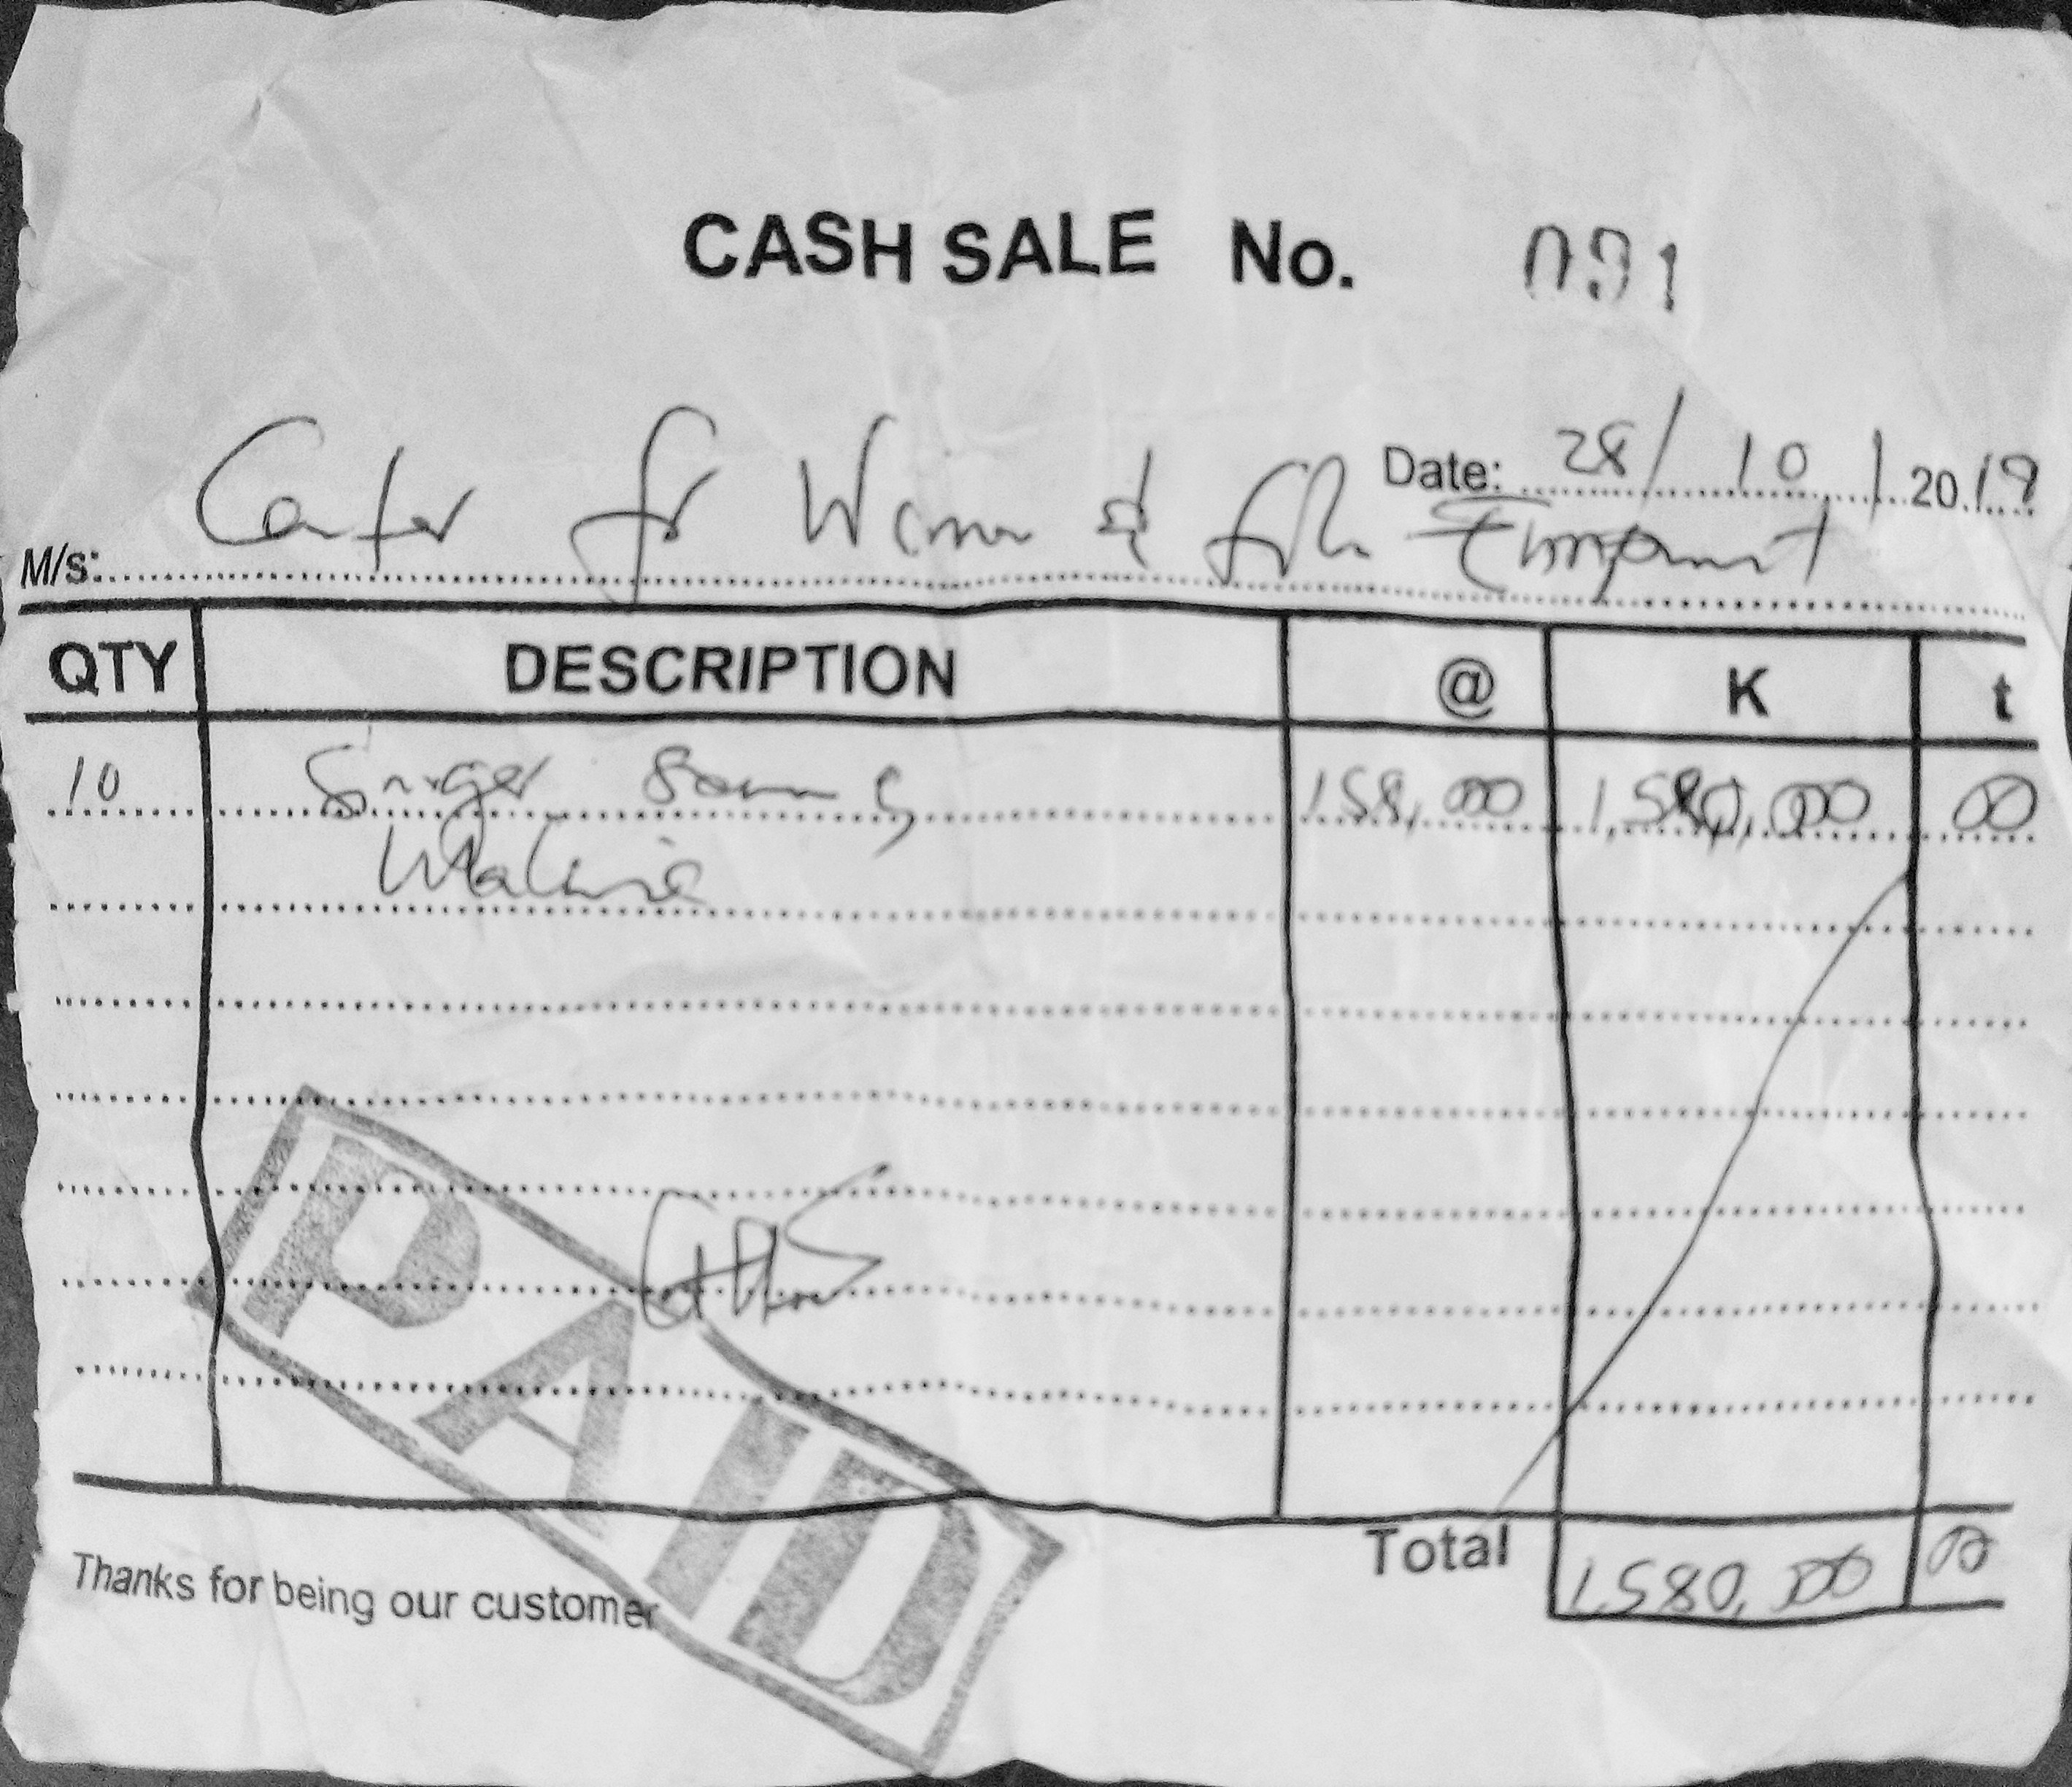 CASH SALE No. 091
Date: 28/10/2019
M/s: Center for Women &
QTY DESCRIPTION @ K t
10 Singer Sewing 158,000 1,580,000 00
Machine
PAID
Total 1,580,000 00
Thanks for being our customer